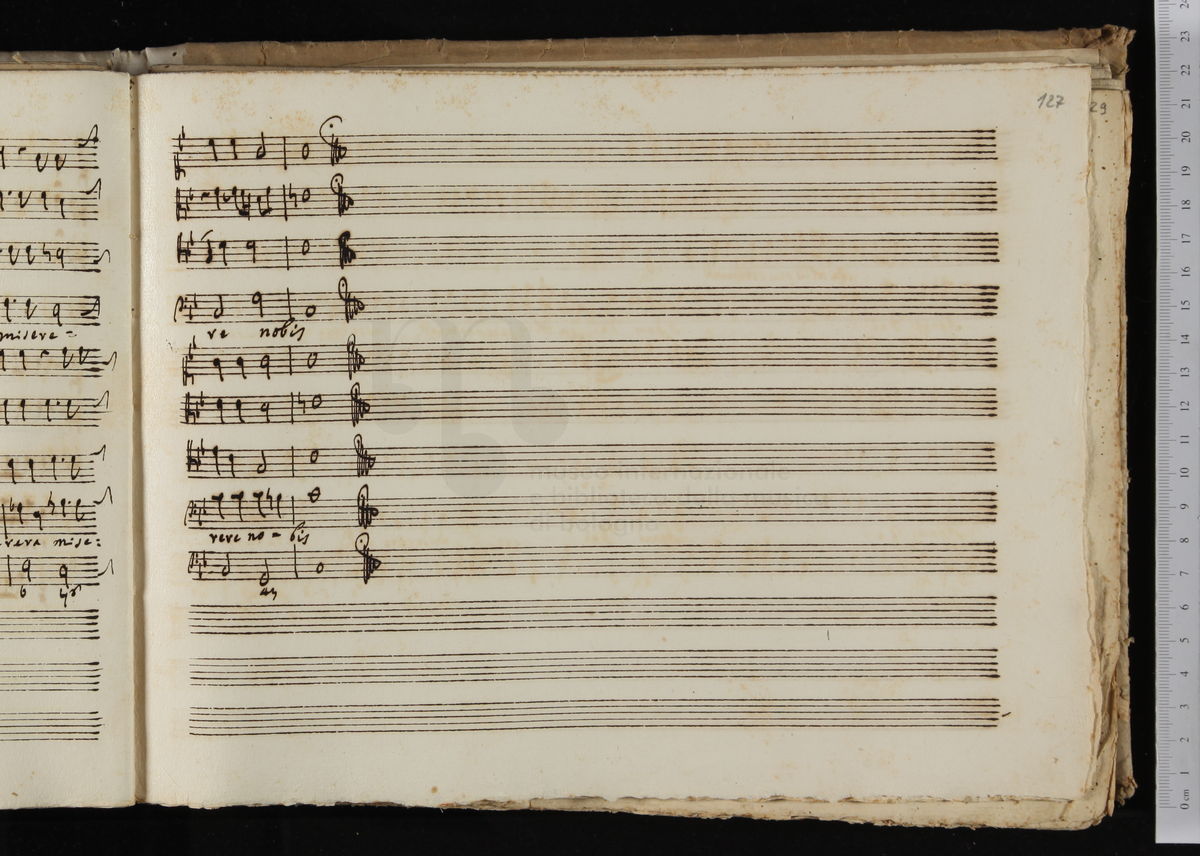 127
29
misere =
re nobis
rere mise:
rere no = bis
6
museo internazionale
e biblioteca della musica
di bologna
24
23
22
21
20
19
18
17
16
15
14
13
12
11
10
9
8
7
6
5
4
3
2
1
0 cm